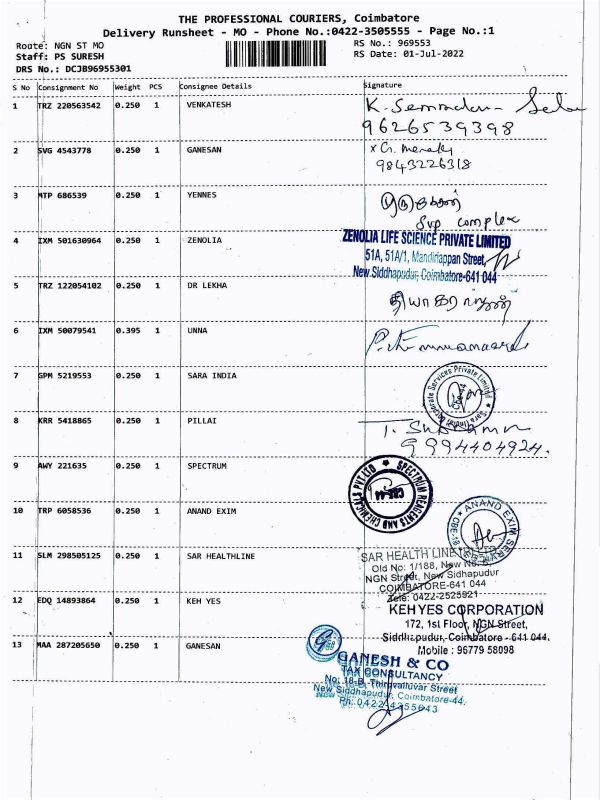 THE PROFESSIONAL COURIERS, Coimbatore
Delivery Runsheet - MO - Phone No.:0422-3505555 - Page No.:1
Route: NGN ST MO
RS No.: 969553
Staff: PS SURESH
RS Date: 01-Jul-2022
DRS No.: DCJB96955301
S No Consignment No Weight PCS Consignee Details Signature
1 TRZ 220563542 0.250 1 VENKATESH
9626539398
2 SVG 4543778 0.250 1 GANESAN
9843226318
3 MTP 686539 0.250 1 YENNES
SVP complex
4 IXM 501630964 0.250 1 ZENOLIA
ZENOLIA LIFE SCIENCE PRIVATE LIMITED
51A, 51A/1, Mandiriappan Street,
New Siddhapudur, Coimbatore-641 044
5 TRZ 122054102 0.250 1 DR LEKHA
6 IXM 50079541 0.395 1 UNNA
7 GPM 5219553 0.250 1 SARA INDIA
8 KRR 5418865 0.250 1 PILLAI
9994404924.
9 AWY 221635 0.250 1 SPECTRUM
SPECTRUM REAGENTS AND CHEMICALS PVT LTD
CBE-44
10 TRP 6058536 0.250 1 ANAND EXIM
ANAND EXIM
11 SLM 298505125 0.250 1 SAR HEALTHLINE
SAR HEALTH LINE
Old No: 1/188, New No.
NGN Street, New Sidhapudur
COIMBATORE-641 044
Tele: 0422-2525921
12 EDQ 14893864 0.250 1 KEH YES
KEHYES CORPORATION
172, 1st Floor, NGN Street,
Siddhapudur, Coimbatore - 641 044.
Mobile : 96779 58098
13 MAA 287205650 0.250 1 GANESAN
GANESH & CO
TAX CONSULTANCY
No: 18-B, Thiruvalluvar Street
New Siddhapudur, Coimbatore-44.